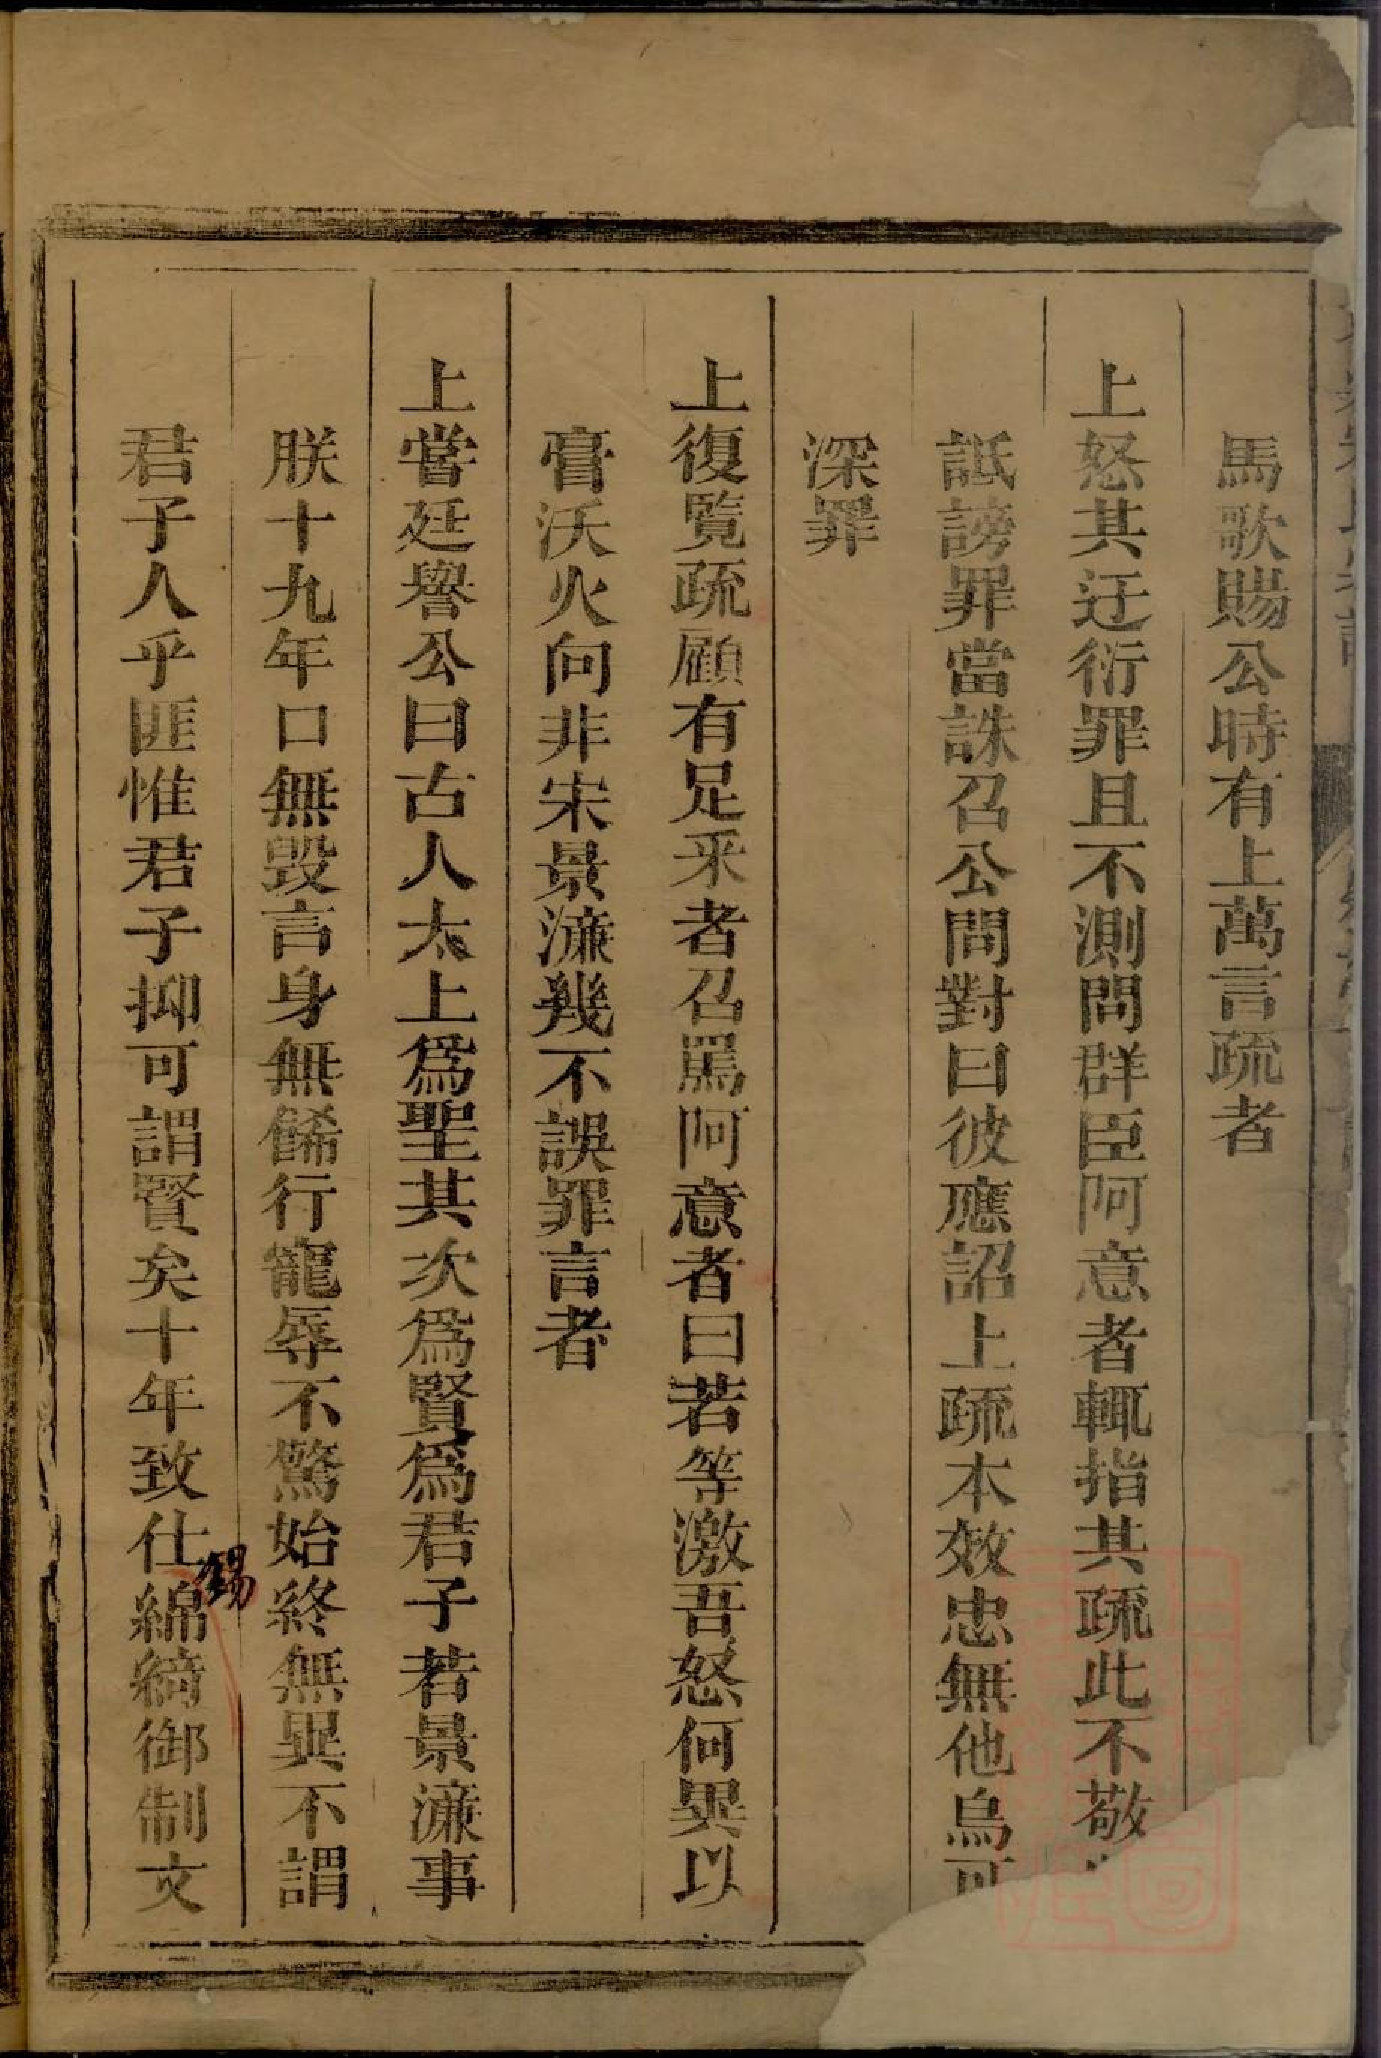 馬歌賜公時有上萬言疏者
上怒其迂衍罪且不測問群臣阿意者輒指其疏此不敬
詆謗罪當誅召公問對曰彼應詔上疏本效忠無他烏可
深罪
上復覧疏顧有足采者召罵阿意者曰若等激吾怒何異以
膏沃火向非宋景濂幾不誤罪言者
上嘗廷譽公曰古人太上爲聖其次爲賢爲君子若景濂事
朕十九年口無毀言身無餙行寵辱不驚始終無異不謂
君子人乎匪惟君子抑可謂賢矣十年致仕綿綺御制文
錫